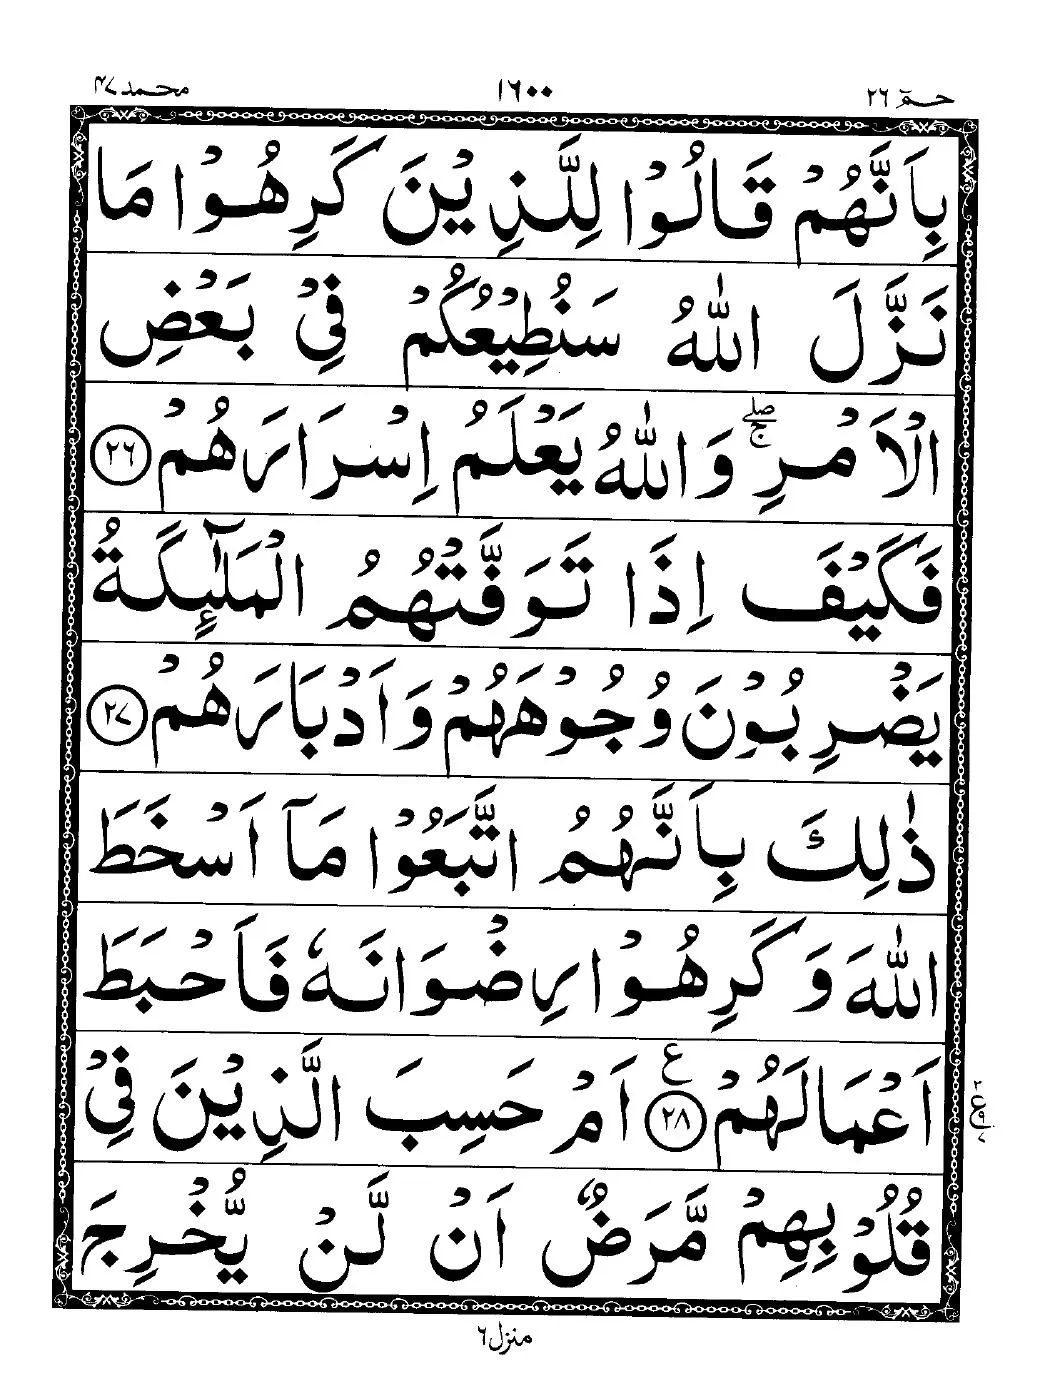 حٰمٓ ٢٦ ١٦٠٠ محمد ٤٧
بِاَنَّهُمْ قَالُوْا لِلَّذِيْنَ كَرِهُوْا مَا
نَزَّلَ اللّٰهُ سَنُطِيْعُكُمْ فِيْ بَعْضِ
الْاَمْرِ ۖۚ وَاللّٰهُ يَعْلَمُ اِسْرَارَهُمْ ٢٦
فَكَيْفَ اِذَا تَوَفَّتْهُمُ الْمَلٰٓئِكَةُ
يَضْرِبُوْنَ وُجُوْهَهُمْ وَاَدْبَارَهُمْ ٢٧
ذٰلِكَ بِاَنَّهُمُ اتَّبَعُوْا مَآ اَسْخَطَ
اللّٰهَ وَكَرِهُوْا رِضْوَانَهٗ فَاَحْبَطَ
اَعْمَالَهُمْ ٢٨ ع اَمْ حَسِبَ الَّذِيْنَ فِيْ
قُلُوْبِهِمْ مَّرَضٌ اَنْ لَّنْ يُّخْرِجَ
منزل ٦